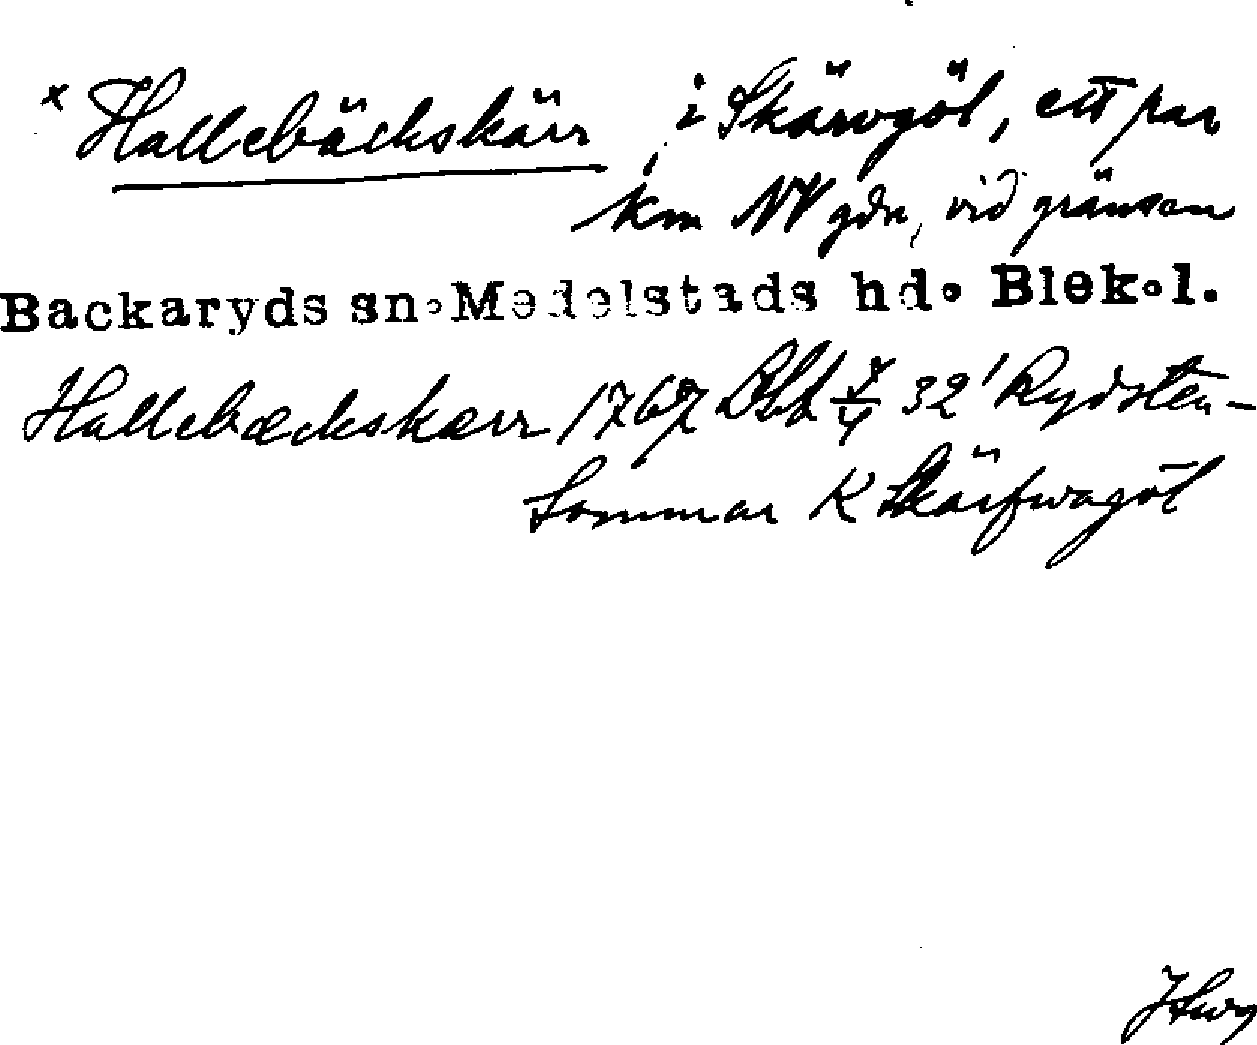 × Hallebäckskärr, i Skärvgöl, ett par
km NV gdn, vid gränsen
Backaryds sn. Medelstads hd. Blek.l.
Hallebæckskærr 1767 32' Rydsten-
Sommar K Skärfwagöl